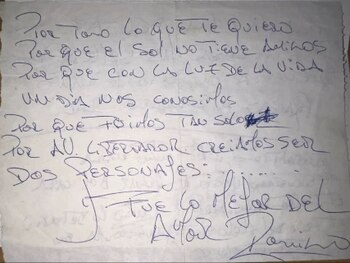 Por Todo lo que Te Quiero
Por que el Sol no Tiene Amigos
Por que con la Luz de la Vida
un dia nos conosimos
Por que Fuimos Tan Solo
Por Libertador creimos ser
Dos Personajes:.......
Fue lo Mejor del
Amor